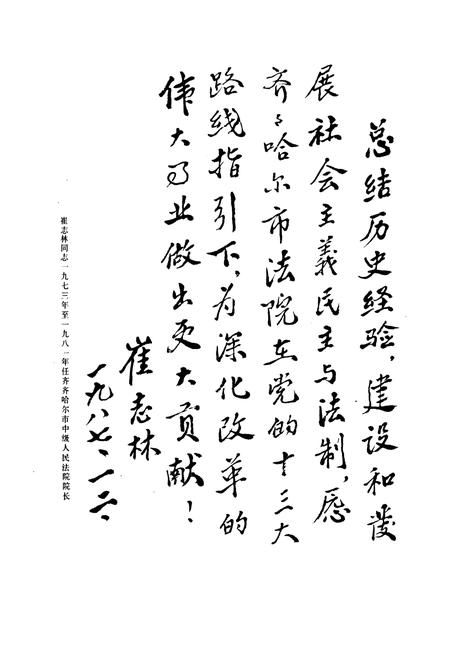 总结历史经验，建设和发
展社会主義民主与法制，愿
齐々哈尔市法院在党的十三大
路线指引下，为深化改革的
伟大的业做出更大贡献！
崔志林
一九八七、一二、
崔志林同志一九七三年至一九八一年任齐齐哈尔市中级人民法院院长